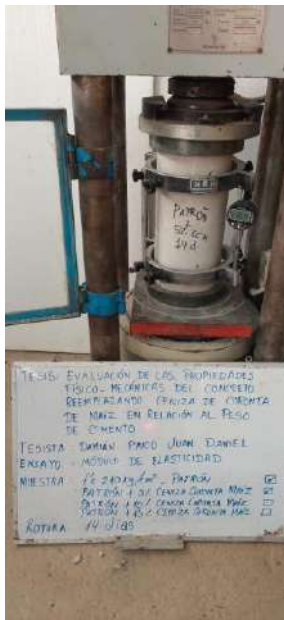 PATRÓN
+
5% CCM
14 d
TESIS: EVALUACIÓN DE LAS PROPIEDADES
FÍSICO-MECÁNICAS DEL CONCRETO
REEMPLAZANDO CENIZA DE CORONTA
DE MAÍZ EN RELACIÓN AL PESO
DE CEMENTO
TESISTA: DAMIAN PAICO JUAN DANIEL
ENSAYO: MÓDULO DE ELASTICIDAD
MUESTRA: F'c 210 kg/cm² - PATRÓN
PATRÓN + 5% CENIZA CORONTA MAÍZ
PATRÓN + 10% CENIZA CORONTA MAÍZ
PATRÓN + 15% CENIZA CORONTA MAÍZ
ROTURA: 14 días